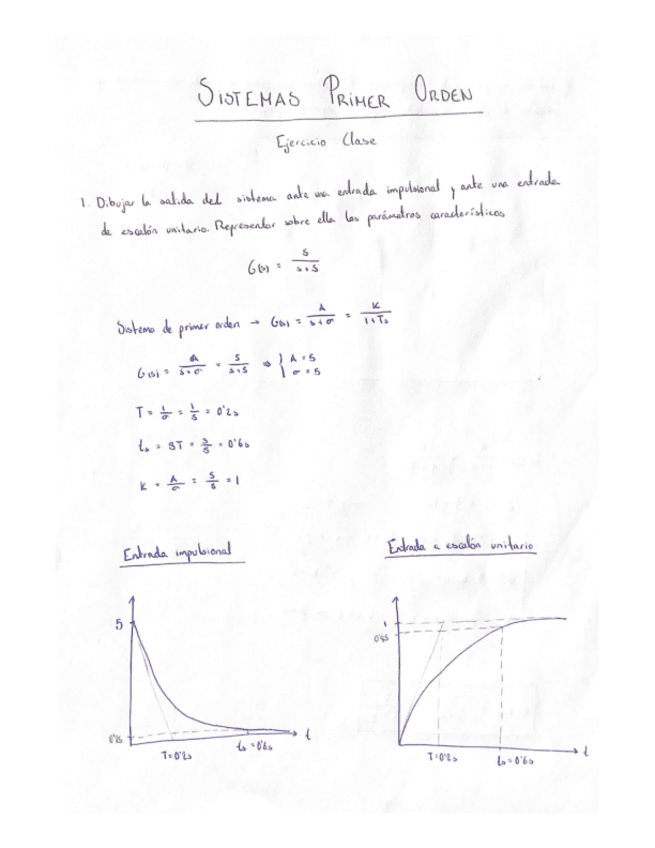 SISTEMAS PRIMER ORDEN
Ejercicio Clase
1. Dibujar la salida del sistema ante una entrada impulsional y ante una entrada
de escalón unitario. Representar sobre ella los parámetros característicos
G(s) = 5/(s+5)
Sistema de primer orden → G(s) = A/(s+σ) = K/(1+Ts)
G(s) = A/(s+σ) = 5/(s+5) ⇒ { A = 5 σ = 5
T = 1/σ = 1/5 = 0'2s
ts = 3T = 3/5 = 0'6s
K = A/σ = 5/5 = 1
Entrada impulsional
Entrada a escalón unitario
5
t
T=0'2s
ts = 0'6s
1
0'95
t
T=0'2s
ts = 0'6s